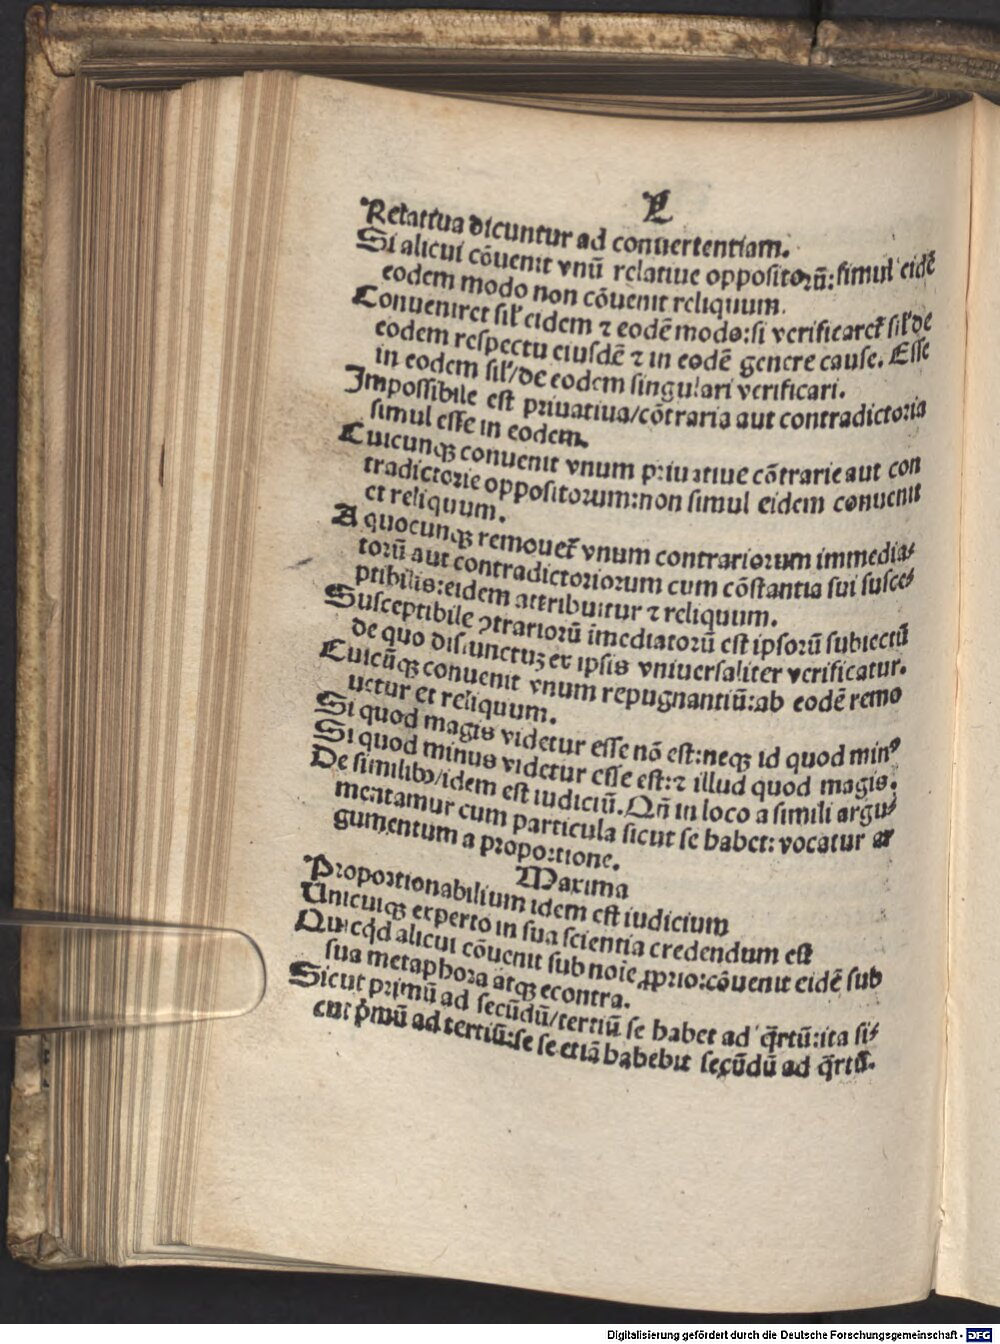 L
Relatiua dicuntur ad conuertentiam.
Si alicui cōuenit vnū relatiue oppositorū: simul eidē
eodem modo non cōuenit reliquum.
Conueniret sil' eidem ⁊ eodē modo: si verificaret̃ sil' de
eodem respectu eiusdē ⁊ in eodē genere cause. Esse
in eodem sil'/de eodem singulari verificari.
Impossibile est priuatiua/cōtraria aut contradictoria
simul esse in eodem.
Cuicunqꝫ conuenit vnum priuatiue cōtrarie aut con
tradictorie oppositorum: non simul eidem conuenit
et reliquum.
A quocunqꝫ remouet̃ vnum contrariorum immedia⸗
torū aut contradictoriorum cum cōstantia sui susce⸗
ptibilis: eidem attribuitur ⁊ reliquum.
Susceptibile ꝯtrariorū imediatorū est ipsorū subiectū
de quo disiunctuꝫ ex ipsis vniuersaliter verificatur.
Cuicūqꝫ conuenit vnum repugnantiū: ab eodē remo
uetur et reliquum.
Si quod magis videtur esse nō est: neqꝫ id quod minꝰ
Si quod minus videtur esse est: ⁊ illud quod magis.
De similibꝰ/idem est iudiciū. Qñ in loco a simili argu⸗
mentamur cum particula sicut se habet: vocatur ar
gumentum a proportione.
Maxima
Proportionabilium idem est iudicium
Unicuiqꝫ experto in sua scientia credendum est
Quicqd̄ alicui cōuenit sub noīe ꝓprio: cōuenit eidē sub
sua metaphora atqꝫ econtra.
Sicut primū ad secūdū/tertiū se habet ad q̄rtū: ita si⸗
cut p̄mū ad tertiū: se se etiā habebit secūdū ad q̄rtū.
Digitalisierung gefördert durch die Deutsche Forschungsgemeinschaft - DFG